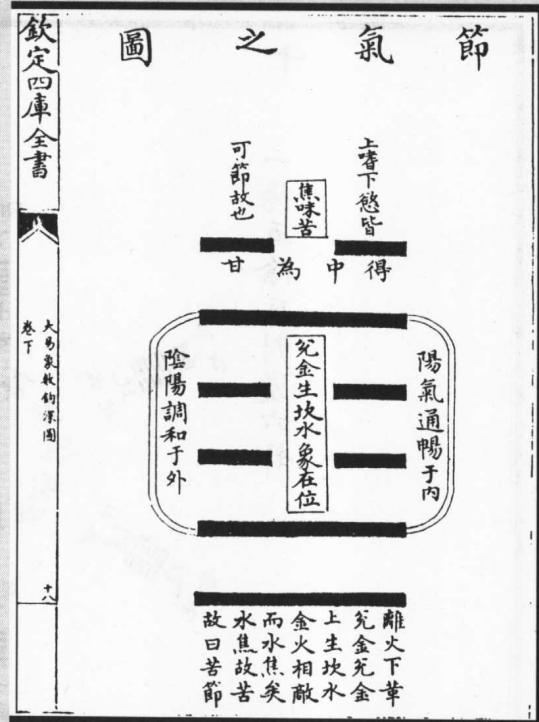 節氣之圖
上嗜下慾皆
焦味苦
可節故也
得中為甘
陽氣通暢于内
兌金生坎水象在位
陰陽調和于外
離火下革
兌金兌金
上生坎水
金火相敵
而水焦矣
水焦故苦
故曰苦節
欽定四庫全書
大易象數鈎深圖
卷下
十八